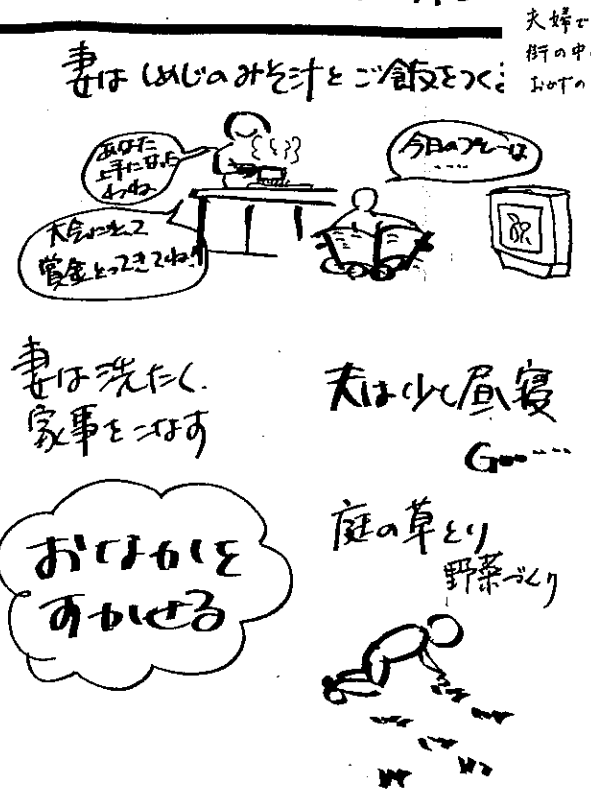 夫婦で
街の中
おかずの
妻はしめじのみそ汁とご飯をつくる
あなた
上手になった
わね
今日のプレーは
……
大会に出て
賞金とってきてね!!
妻は洗たく
家事をこなす
夫は少し昼寝
Goo……
おなかを
すかせる
庭の草とり
野菜づくり